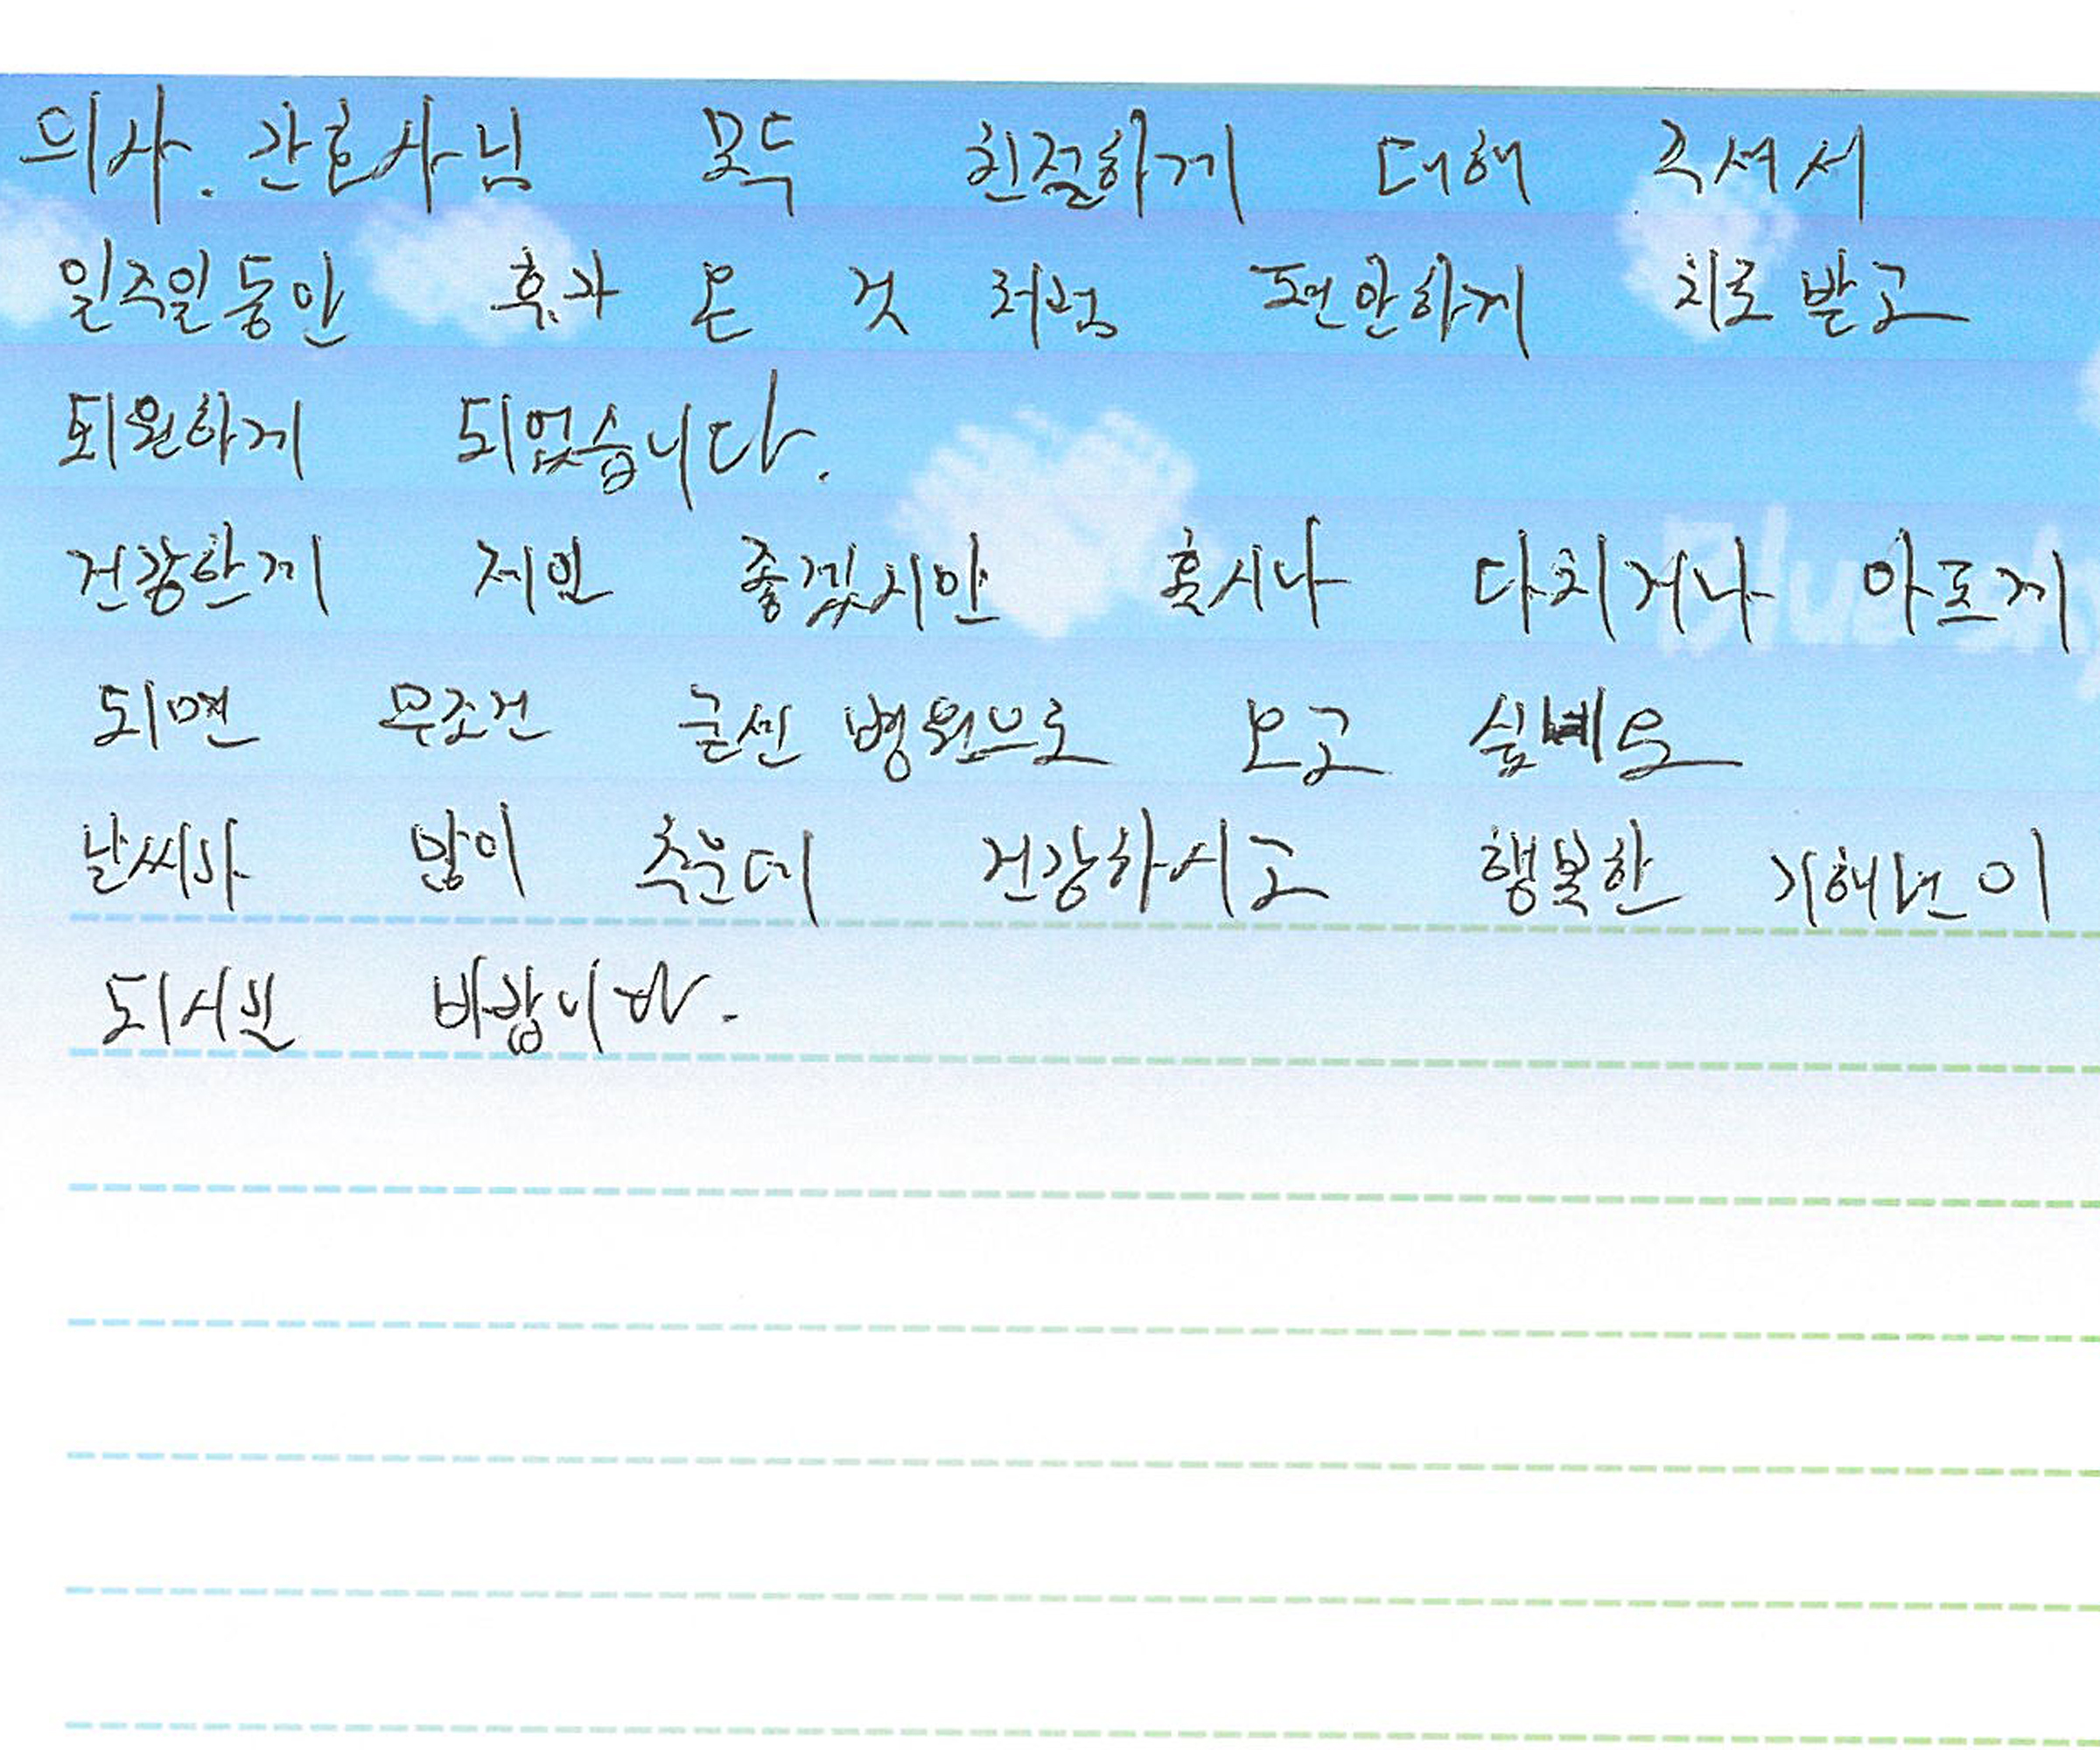 의사. 간호사님 모두 친절하게 대해 주셔서
일주일동안 휴가 온 것 처럼 편안하게 치료 받고
퇴원하게 되었습니다.
건강한게 제일 좋겠지만 혹시나 다치거나 아프게
되면 무조건 굳센 병원으로 오고 싶네요
날씨가 많이 추운데 건강하시고 행복한 기해년이
되시길 바랍니다.